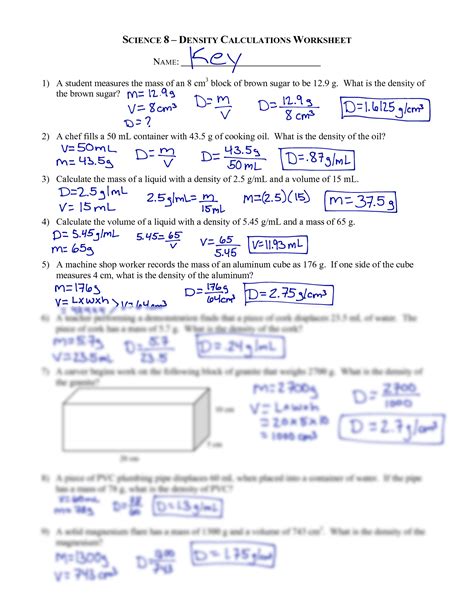 SCIENCE 8 – DENSITY CALCULATIONS WORKSHEET
NAME: Key
1) A student measures the mass of an 8 cm³ block of brown sugar to be 12.9 g. What is the density of
the brown sugar? m = 12.9g
V = 8cm³
D = ?
D = m/V
D = 12.9g / 8 cm³
D = 1.6125 g/cm³
2) A chef fills a 50 mL container with 43.5 g of cooking oil. What is the density of the oil?
V = 50mL
m = 43.5g
D = m/V
D = 43.5g / 50mL
D = .87g/mL
3) Calculate the mass of a liquid with a density of 2.5 g/mL and a volume of 15 mL.
D = 2.5g/mL
V = 15mL
2.5g/mL = m / 15mL
m = (2.5)(15)
m = 37.5g
4) Calculate the volume of a liquid with a density of 5.45 g/mL and a mass of 65 g.
D = 5.45g/mL
m = 65g
5.45 = 65/V
V = 65 / 5.45
V = 11.93mL
5) A machine shop worker records the mass of an aluminum cube as 176 g. If one side of the cube
measures 4 cm, what is the density of the aluminum?
m = 176g
V = Lxwxh > V = 64cm³
D = 176g / 64cm³
D = 2.75g/cm³
6) A teacher performing a demonstration finds that a piece of cork displaces 23.5 mL of water. The
piece of cork has a mass of 5.7 g. What is the density of the cork?
m = 5.7g
V = 23.5mL
D = 5.7 / 23.5
D = .24g/mL
7) A carver begins work on the following block of granite that weighs 2700 g. What is the density of
the granite?
10 cm
5 cm
20 cm
m = 2700g
V = Lxwxh
= 20x5x10
= 1000 cm³
D = 2700 / 1000
D = 2.7g/cm³
8) A piece of PVC plumbing pipe displaces 60 mL when placed into a container of water. If the pipe
has a mass of 78 g, what is the density of PVC?
V = 60mL
9) A solid magnesium flare has a mass of 1300 g and a volume of 743 cm³. What is the density of the
magnesium?
m = 1300g
V = 743 cm³
D = 1.75g/cm³